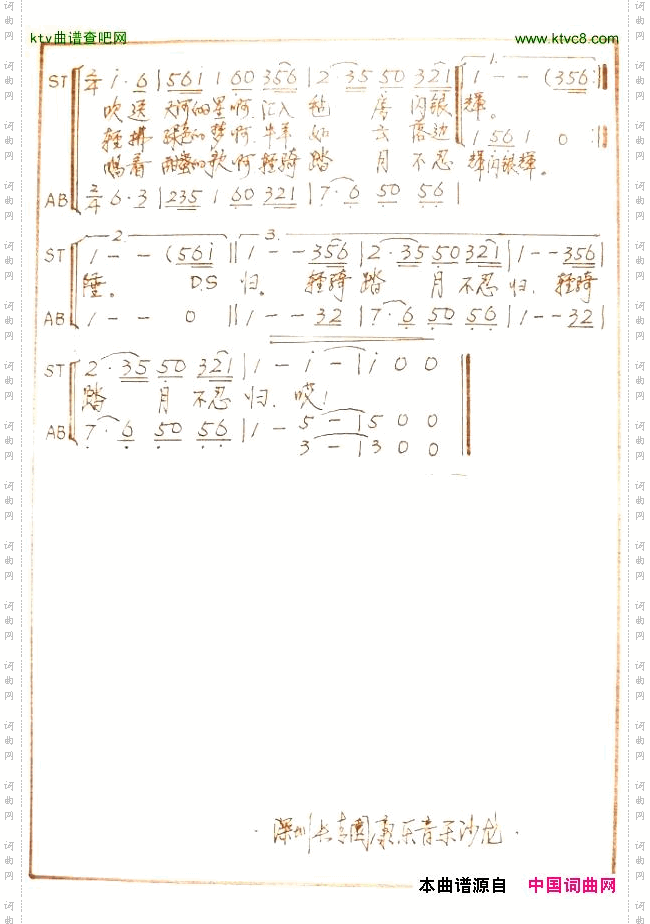 ktv曲谱查吧网 www.ktvc8.com
1.
ST 2/4 i·6 | 561 1 60 356 | 2·35 50 321 | 1 - - (356:||
吹送 天河的星啊,汇入 毡 房 闪银 辉。
轻拂 绿色的梦啊,牛羊 如 云 高边
唱着 甜蜜的歌啊 轻骑 踏 月 不忍 辉闪银辉。
1 561 1 0 :||
AB 2/4 6·3 | 235 1 60 321 | 7·6 50 56 |
2. 3.
ST 1 - - (561 || 1 - - 356 | 2·35 50 321 | 1 - - 356 |
睡。 D.S 归。 轻骑 踏 月 不忍 归. 轻骑
AB 1 - - 0 || 1 - - 32 | 7·6 50 56 | 1 - - 32 |
ST 2·35 50 321 | 1 - i - | i 0 0
踏 月 不忍 归. 哎!
AB 7·6 50 56 | 1 - 5 - | 5 0 0
3 - | 3 0 0
本曲谱源自 中国词曲网
词曲网